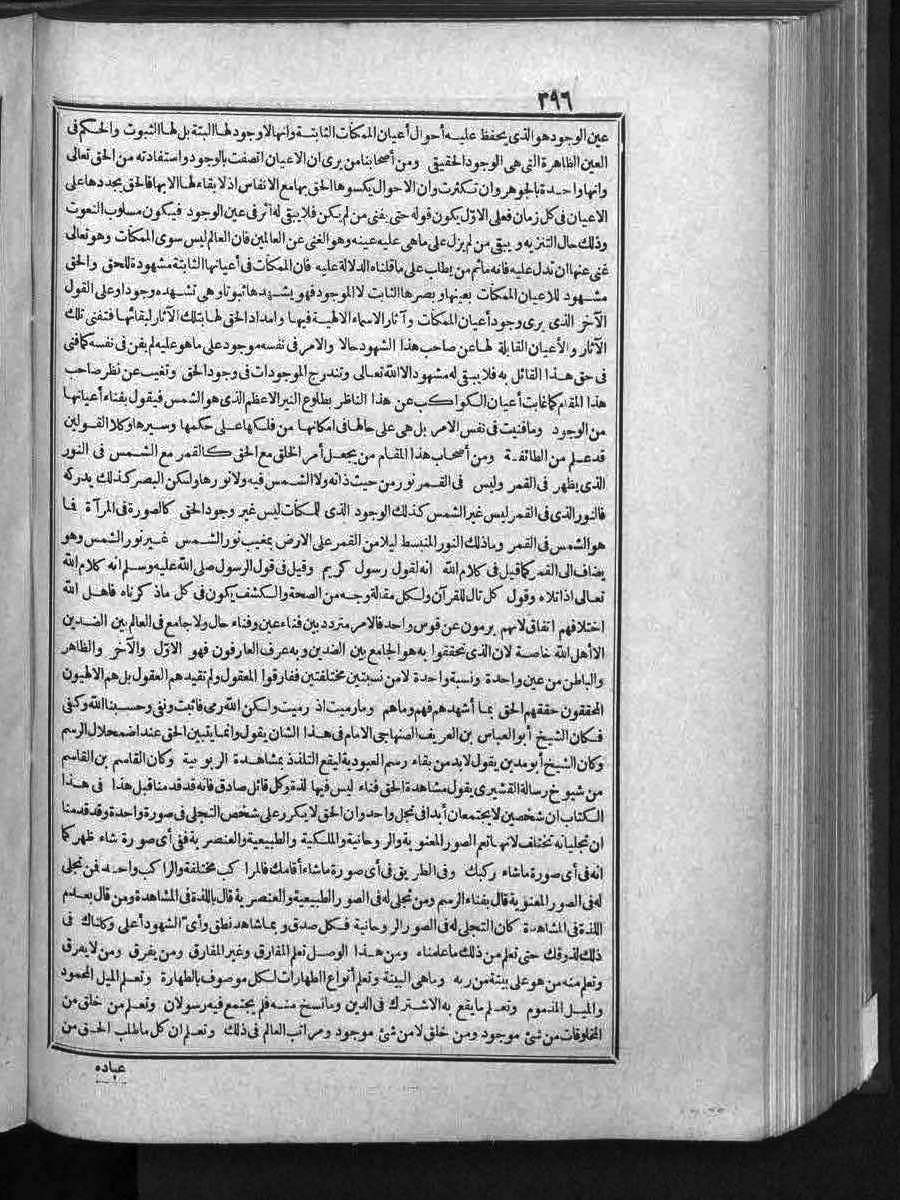 ٣٩٦
عين الوجود هو الذى يحفظ عليه أحوال أعيان الممكنات الثابتة وانها لا وجود لها البتة بل لها الثبوت والحكم فى
العين الظاهرة التى هى الوجود الحقيقى ومن أصحابنا من يرى ان الاعيان اتصفت بالوجود واستفادته من الحق تعالى
وانها واحدة بالجوهر وان تكثرت وان الاحوال يكسوها الحق بها مع الانفاس اذ لا بقاء لها الا بها فالحق يجددها على
الاعيان فى كل زمان فعلى الاوّل يكون قوله حتى يفنى من لم يكن فلا يبقى له أثر فى عين الوجود فيكون مسلوب النعوت
وذلك حال التنزيه ويبقى من لم يزل على ما هى عليه عينه وهو الغنى عن العالمين فان العالم ليس سوى الممكنات وهو تعالى
غنى عنها ان تدل عليه فانه ما ثم من يطلب على ما قلناه الدلالة عليه فان الممكنات فى أعيانها الثابتة مشهودة للحق والحق
مشهود للاعيان الممكنات بعينها وبصرها الثابت لا الموجود فهو يشهدها ثبوتا وهى تشهده وجودا وعلى القول
الآخر الذى يرى وجود أعيان الممكنات وآثار الاسماء الالهية فيها وامداد الحق لها بتلك الآثار لبقائها فتفنى تلك
الآثار والأعيان القابلة لها عن صاحب هذا الشهود حالا والامر فى نفسه موجود على ما هو عليه لم يفن فى نفسه كما فنى
فى حق هذا القائل به فلا يبقى له مشهود الا الله تعالى وتندرج الموجودات فى وجود الحق وتغيب عن نظر صاحب
هذا المقام كما غابت أعيان الكواكب عن هذا الناظر بطلوع النير الاعظم الذى هو الشمس فيقول بفناء أعيانها
من الوجود وما فنيت فى نفس الامر بل هى على حالها فى امكانها من فلكها على حكمها وسيرها وكلا القولين
قد علم من الطائفة ومن أصحاب هذا المقام من يجعل أمر الخلق مع الحق كالقمر مع الشمس فى النور
الذى يظهر فى القمر وليس فى القمر نور من حيث ذاته ولا الشمس فيه ولا نورها ولكن البصر كذلك يدركه
فالنور الذى فى القمر ليس غير الشمس كذلك الوجود الذى للمكنات ليس غير وجود الحق كالصورة فى المرآة فما
هو الشمس فى القمر وما ذلك النور المنبسط ليلا من القمر على الارض بمغيب نور الشمس غير نور الشمس وهو
يضاف الى القمر كما قيل فى كلام الله انه لقول رسول كريم وقيل فى قول الرسول صلى الله عليه وسلم انه كلام الله
تعالى اذا تلاه وقول كل تال للقرآن ولكل مقالة وجه من الصحة والكشف يكون فى كل ما ذكرناه فاهل الله
اختلافهم اتفاق لانهم يرمون عن قوس واحد فالامر متردد بين فناء عين وفناء حال ولا جامع فى العالم بين الضدين
الا أهل الله خاصة لان الذى تحققوا به هو الجامع بين الضدين وبه عرف العارفون فهو الاوّل والآخر والظاهر
والباطن من عين واحدة ونسبة واحدة لا من نسبتين مختلفتين ففارقوا المعقول ولم تقيدهم العقول بل هم الالهيون
المحققون حققهم الحق بما أشهدهم فهم وما هم وما رميت اذ رميت ولكن الله رمى فاثبت ونفى وحسبنا الله وكفى
فكان الشيخ أبو العباس بن العريف الصنهاجى الامام فى هذا الشان يقول وانما يتبين الحق عند اضمحلال الرسم
وكان الشيخ أبو مدين يقول لا بد من بقاء رسم العبودية ليقع التلذذ بمشاهدة الربوبية وكان القاسم بن القاسم
من شيوخ رسالة القشيرى يقول مشاهدة الحق فناء ليس فيها لذة وكل قائل صادق فانه قد قدمنا قبل هذا فى هذا
الكتاب ان شخصين لا يجتمعان أبدا فى تجل واحد وان الحق لا يكرر على شخص التجلى فى صورة واحدة وقد قدمنا
ان تجلياته تختلف لانها تعم الصور المعنوية والروحانية والملكية والطبيعية والعنصرية ففى أى صورة شاء ظهر كما
انه فى أى صورة ما شاء ركبك وفى الطريق فى أى صورة ما شاء أقامك فالمراكب مختلفة والراكب واحد فمن تجلى
له فى الصور المعنوية قال بفناء الرسم ومن تجلى له فى الصور الطبيعية والعنصرية قال باللذة فى المشاهدة ومن قال بعدم
اللذة فى المشاهدة كان التجلى له فى الصور الروحانية فكل صدق وبما شاهد نطق وأىّ الشهود أعلى وكلناك فى
ذلك لذوقك حتى تعلم من ذلك ما علمناه ومن هذا الوصل تعلم المفارق وغير المفارق ومن يفرق ومن لا يفرق
وتعلم منه من هو على بينة من ربه وما هى البينة وتعلم أنواع الطهارات لكل موصوف بالطهارة وتعلم الميل المحمود
والميل المذموم وتعلم ما يقع به الاشتراك فى الدين وما نسخ منه فلم يجتمع فيه رسولان وتعلم من خلق من
المخلوقات من شئ موجود ومن خلق لا من شئ موجود ومراتب العالم فى ذلك وتعلم ان كل ما طلب الحق من
عباده